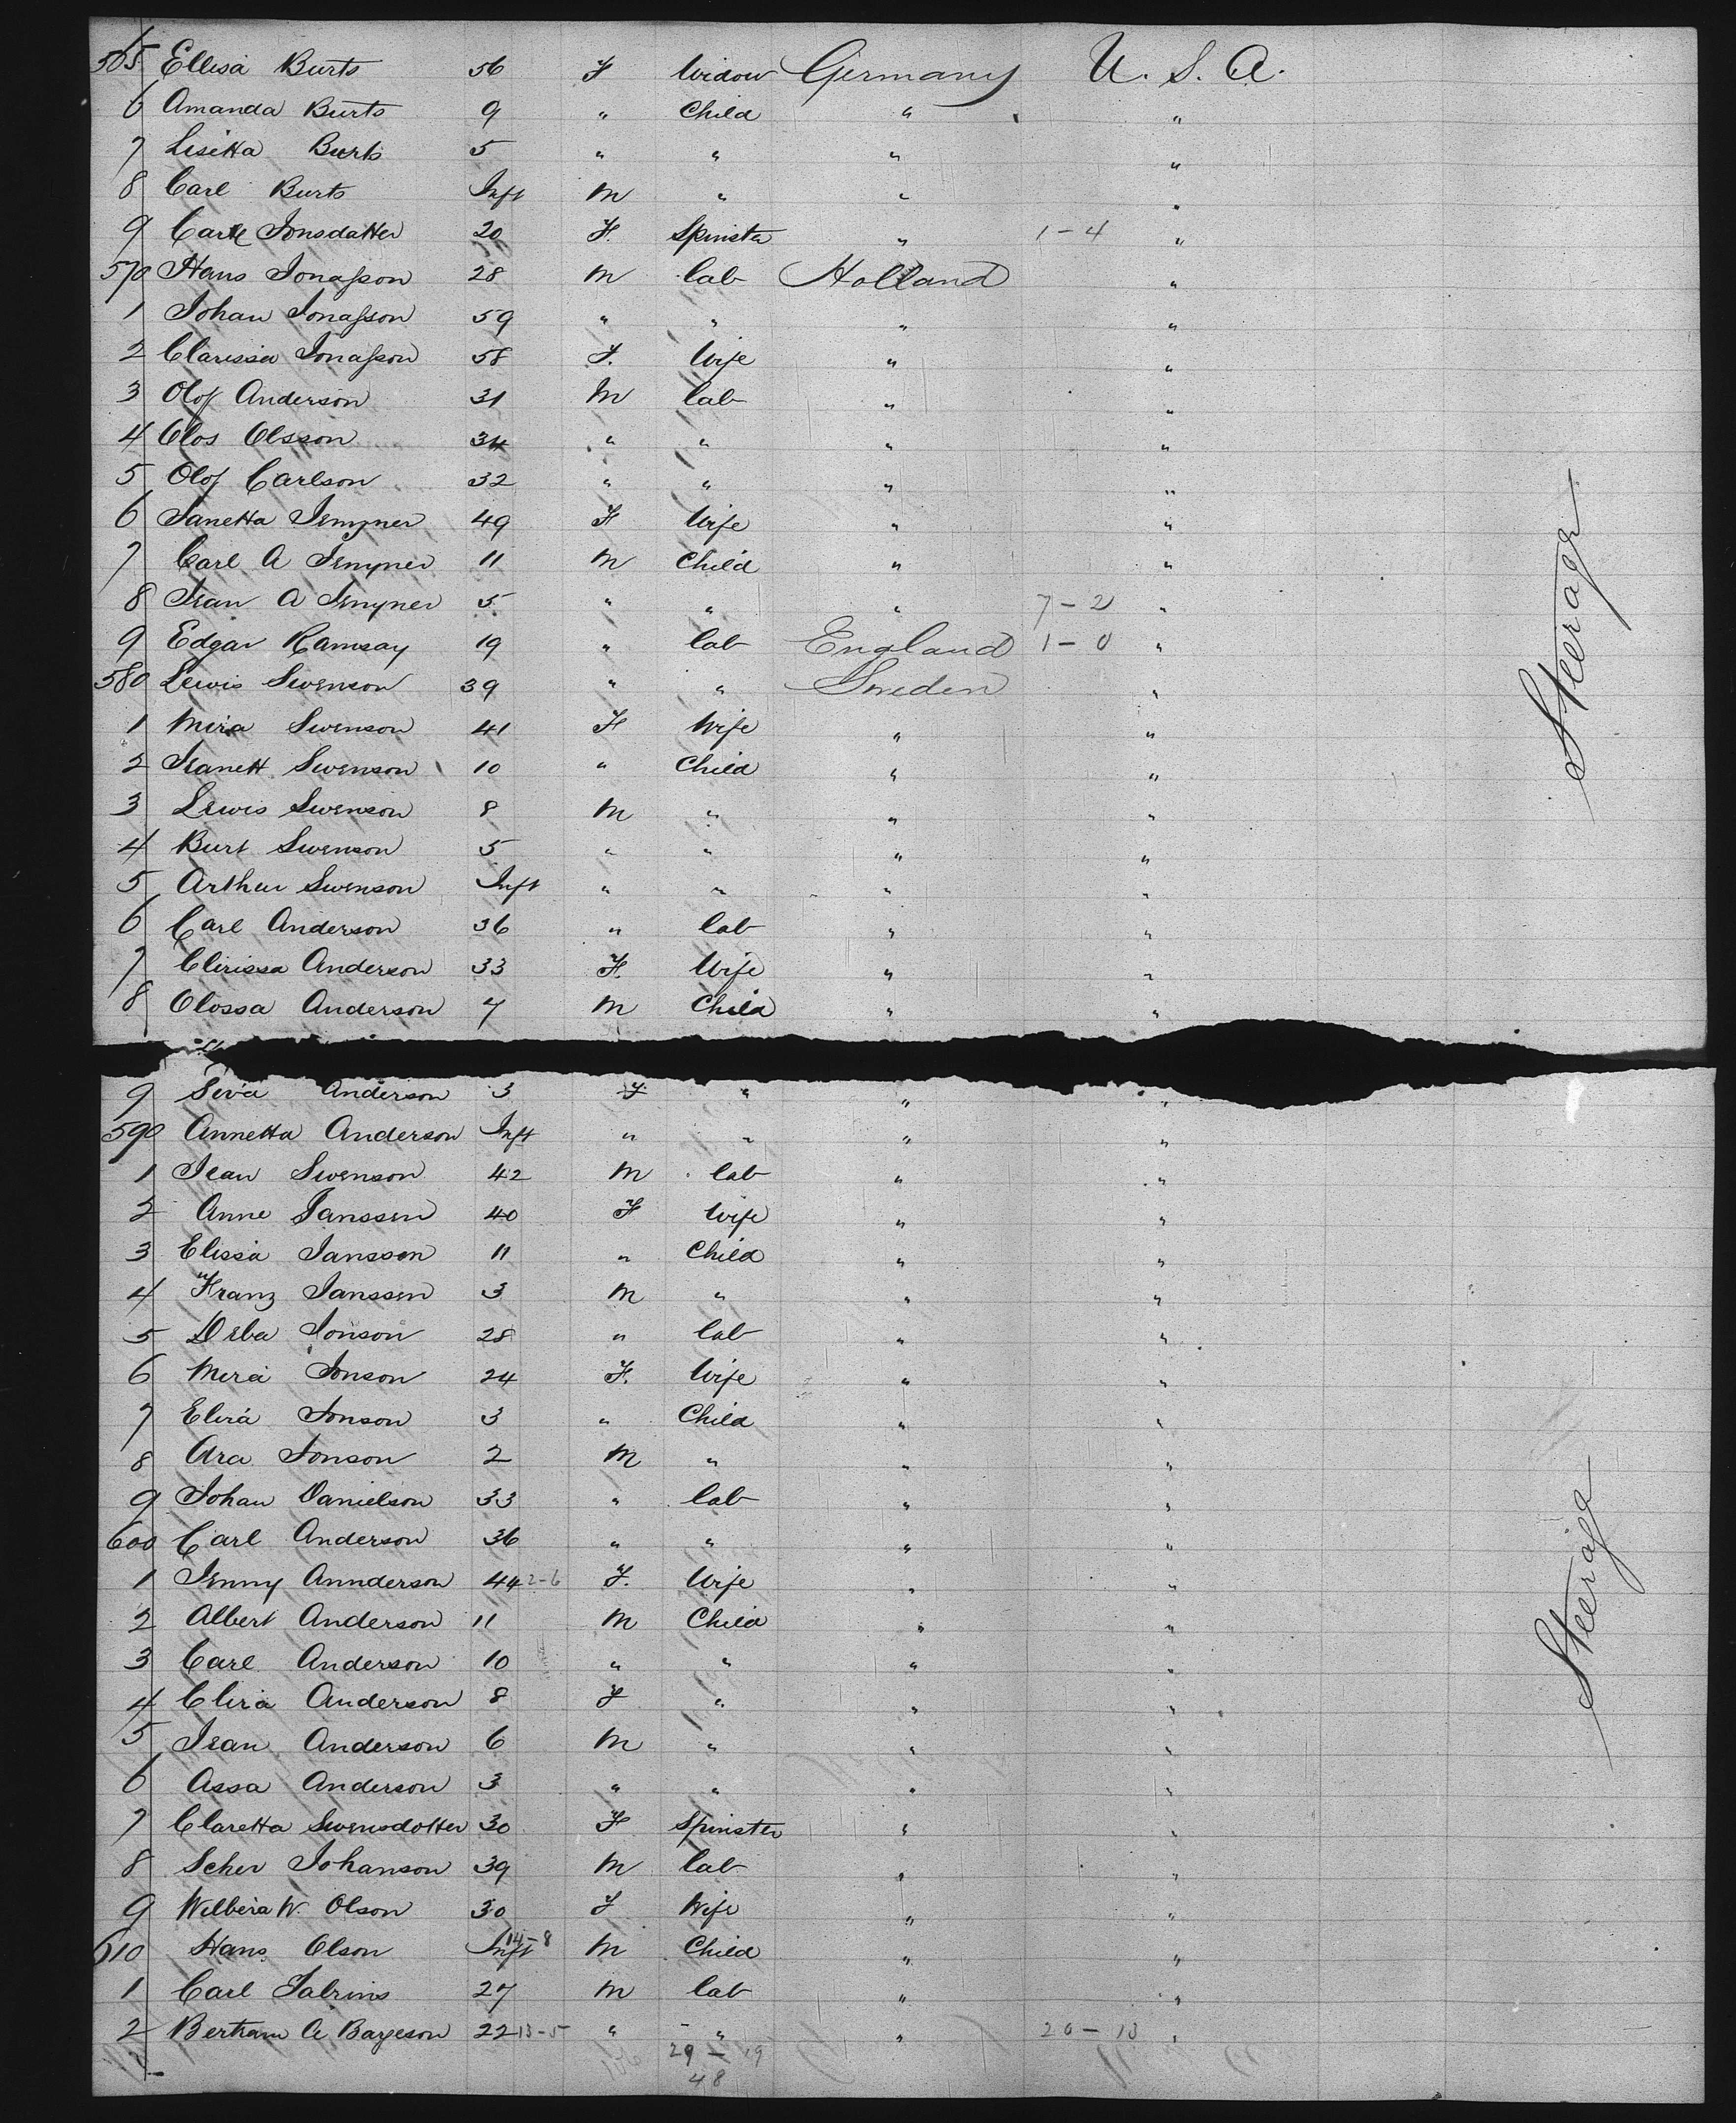 565 Ellisa Burts 56 F Widow Germany U. S. A.
6 Amanda Burts 9 " Child " "
7 Lisetta Burts 5 " " " "
8 Carl Burts Inft M " " "
9 Carte Jonsdatter 20 F. Spinster " 1-4 "
570 Hans Jonasson 28 M lab Holland "
1 Johan Jonasson 59 " " " "
2 Clarissa Jonasson 58 F. Wife " "
3 Olof Anderson 31 M lab " "
4 Olos Olsson 34 " " " "
5 Olof Carlson 32 " " " "
6 Janetta 49 F Wife " "
7 Carl A 11 M Child " "
8 Jean A 5 " " " 7-2 "
9 Edgar Ramsay 19 " lab England 1-0 "
580 Lewis Swenson 39 " " Sweden "
1 Mira Swenson 41 F Wife " "
2 Jeanett Swenson 10 " Child " "
3 Lewis Swenson 8 M " " "
4 Burt Swenson 5 " " " "
5 Arthur Swenson Inft " " " "
6 Carl Anderson 36 " lab " "
7 Clirissa Anderson 33 F. Wife " "
8 Olossa Anderson 7 M Child " "
Steerage
9 Siva Anderson 3 F " " "
590 Annetta Anderson Inft " " " "
1 Jean Swenson 42 M lab " "
2 Anne Janssen 40 F Wife " "
3 Elissa Janssen 11 " Child " "
4 Franz Janssen 3 M " " "
5 Deba Jonson 28 " lab " "
6 Mira Jonson 24 F. Wife " "
7 Elira Jonson 3 " Child " "
8 Ara Jonson 2 M " " "
9 Johan Danielson 33 " lab " "
600 Carl Anderson 36 " " " "
1 Jenny Annderson 44 2-6 F. Wife " "
2 Albert Anderson 11 M Child " "
3 Carl Anderson 10 " " " "
4 Clira Anderson 8 F " " "
5 Jean Anderson 6 M " " "
6 Assa Anderson 3 " " " "
7 Claretta Swensdotter 30 F Spinster " "
8 Scher Johanson 39 M lab " "
9 Wilbera W. Olson 30 F Wife " "
610 Hans Olson Inft 14-8 M Child " "
1 Carl Sabrins 27 M lab " "
2 Bertram A Bargeson 22 13-5 " " " 20-13 "
29-19
48
Steerage